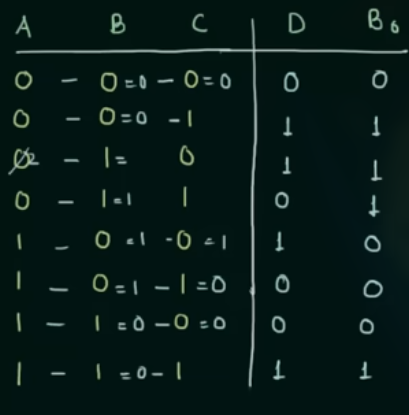 A B C D B₀
0 - 0=0 - 0=0 0 0
0 - 0=0 - 1 1 1
0 - 1= 0 1 1
0 - 1=1 1 0 1
1 - 0=1 - 0=1 1 0
1 - 0=1 - 1=0 0 0
1 - 1=0 - 0=0 0 0
1 - 1=0 - 1 1 1